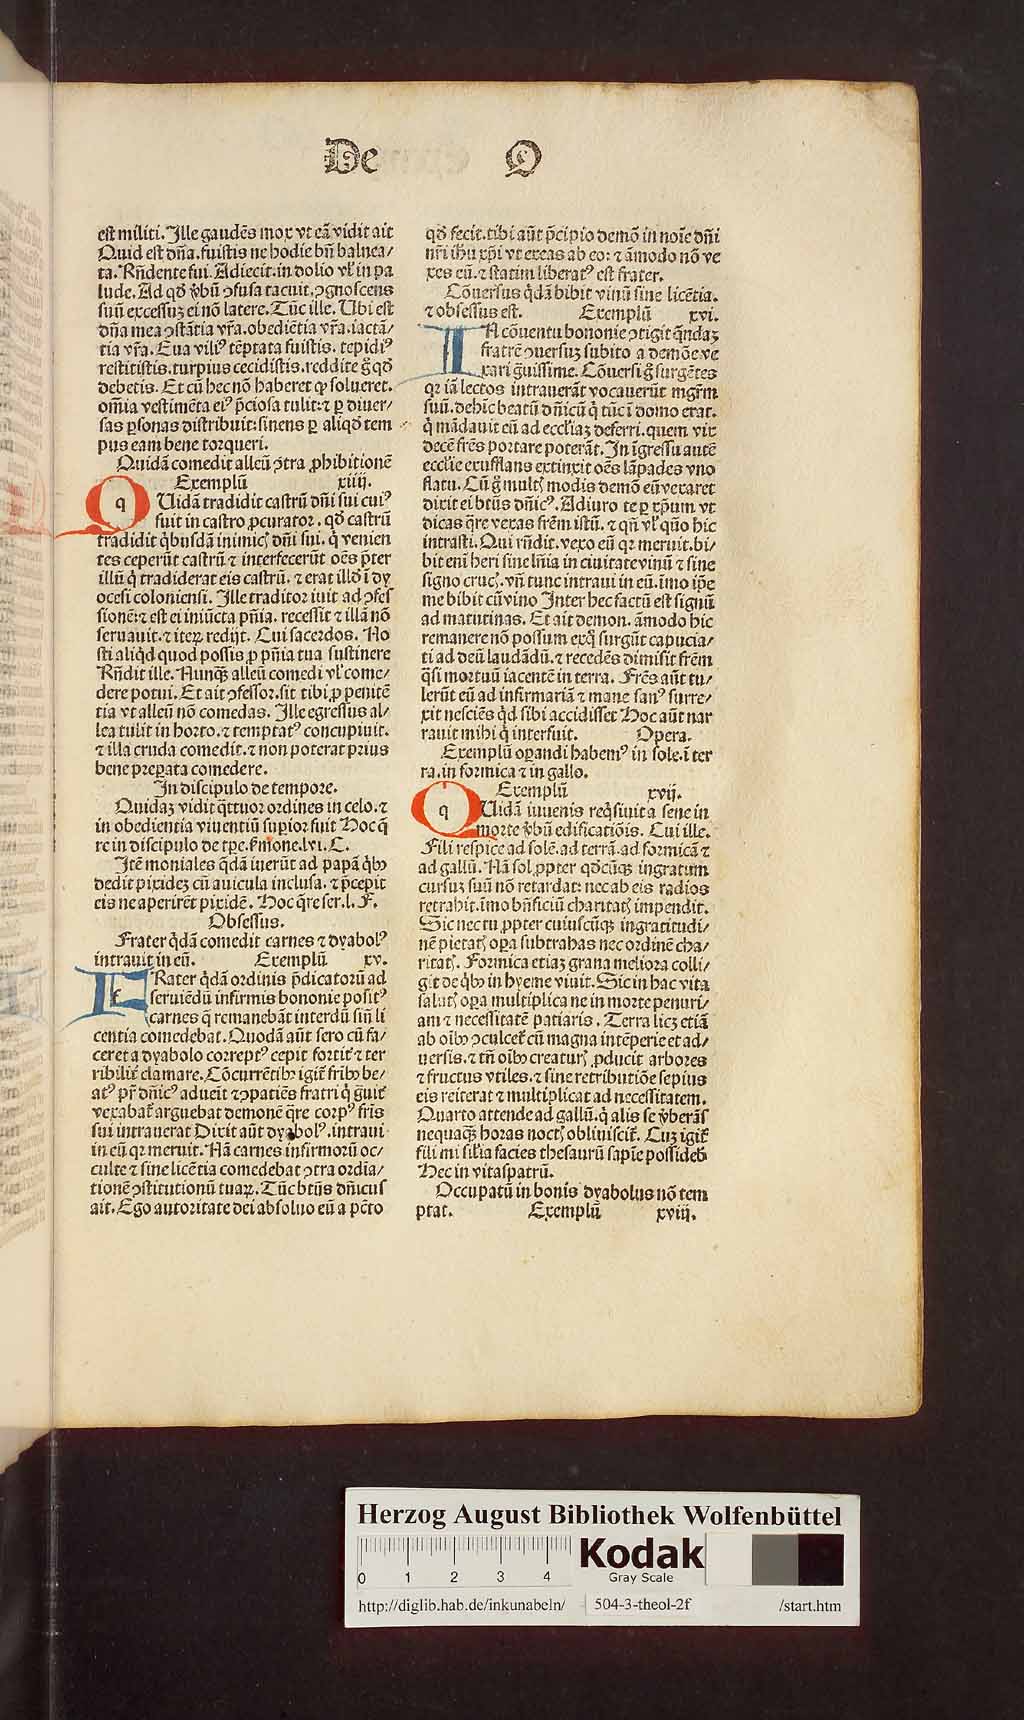 De O
est militi. Ille gaudēs mox vt eā vidit ait
Quid est dn̄a. fuistis ne hodie bn̄ balnea/
ta. Rn̄dente sui. Adiecit. in dolio vl' in pa
lude. Ad qd̄ v̄bū ꝯfusa tacuit. ꝯgnoscens
suū excessuꝫ ei nō latere. Tūc ille. Ubi est
dn̄a mea ꝯstātia vr̄a. obediētia vr̄a. iactā/
tia vr̄a. Eua viliꝰ tēptata fuistis. tepidiꝰ
restitistis. turpius cecidistis. reddite g̊ qd̄
debetis. Et cū hec nō haberet qꝫ solueret.
om̄ia vestimēta eiꝰ p̄ciosa tulit: ⁊ ꝑ diuer/
sas ꝑsonas distribuit: sinens ꝑ aliqd̄ tem
pus eam bene torqueri.
Quidā comedit alleū ꝯtra ꝓhibitionē
Exemplū xiiij.
QUidā tradidit castrū dn̄i sui cuiꝰ
fuit in castro ꝓcurator. qd̄ castrū
tradidit q̇busdā inimicꝭ dn̄i sui. q̇ venien
tes ceperūt castrū ⁊ interfecerūt oēs p̄ter
illū q̇ tradiderat eis castrū. ⁊ erat illd̄ ī dy
ocesi coloniensi. Ille traditor iuit ad ꝯfes
sionē: ⁊ est ei iniūcta pn̄ia. recessit ⁊ illā nō
seruauit. ⁊ iteꝝ redijt. Cui sacerdos. No
sti aliq̇d quod possis ꝓ pn̄ia tua sustinere
Rn̄dit ille. Nunqꝫ alleū comedi vl' come/
dere potui. Et ait ꝯfessor. sit tibi ꝓ penitē
tia vt alleū nō comedas. Ille egressus al/
lea tulit in horto. ⁊ temptatꝰ concupiuit.
⁊ illa cruda comedit. ⁊ non poterat prius
bene preꝑata comedere.
In discipulo de tempore.
Quidaꝫ vidit q̄ttuor ordines in celo. ⁊
in obedientia viuentiū suꝑior fuit Hoc q̄
re in discipulo de tꝑe. sermone. lvi. C.
Itē moniales q̄dā iuerūt ad papā q̇bꝫ
dedit pixideꝫ cū auicula inclusa. ⁊ p̄cepit
eis ne aperirēt pixidē. Hoc q̄re ser. l. F.
Obsessus.
Frater q̇dā comedit carnes ⁊ dyabolꝰ
intrauit in eū. Exemplū xv.
FRater q̇dā ordinis p̄dicatorū ad
seruiēdū infirmis bononie positꝰ
carnes q̄ remanebāt interdū sin̄ li
centia comedebat. Quodā aūt sero cū fa/
ceret a dyabolo correptꝰ cepit fortit̉ ⁊ ter
ribilit̉ clamare. Cōcurrētibꝫ igit̉ fribꝫ be/
atꝰ pr̄ dn̄icꝰ adueīt ⁊ ꝯpatiēs fratri q̇ g̊uit̉
vexabat̉ arguebat demonē q̄re corpꝰ fris̄
sui intrauerat Dixit aūt dyabolꝰ. intraui
in eū qꝛ meruit. Nā carnes infirmorū oc/
culte ⁊ sine licētia comedebat ꝯtra ordia/
tionē ꝯstitutionū tuaꝝ. Tūc btūs dn̄icus
ait. Ego autoritate dei absoluo eū a pctō
qd̄ fecit. tibi aūt p̄cipio demō in noīe dn̄i
nr̄i ih̄u xp̄i vt exeas ab eo: ⁊ āmodo nō ve
xes eū. ⁊ statim liberatꝰ est frater.
Cōuersus q̇dā bibit vinū sine licētia.
⁊ obsessus est. Exemplū xvi.
IN cōuentu bononie ꝯtigit q̄ndaꝫ
fratrē ꝯuersuꝫ subito a demōe ve
xari g̊uissime. Cōuersi g̊ surgētes
qꝛ iā lectos intrauerāt vocauerūt mgr̄m
suū. dehīc beatū dn̄icū q̇ tūc ī domo erat.
q̇ mādauit eū ad eccl'iaꝫ deferri. quem vix
decē fr̄es portare poterāt. In īgressu autē
eccl'ie exufflans extinxit oēs lāpades vno
flatu. Cū g̊ multꝭ modis demō eū vexaret
dixit ei btūs dn̄icꝰ. Adiuro te ꝑ xp̄um vt
dicas q̄re vexas fr̄em istū. ⁊ qn̄ vl' quō hic
intrasti. Qui rn̄dit. vexo eū qꝛ meruit. bi/
bit enī heri sine ln̄ia in ciuitate vinū ⁊ sine
signo crucꝭ. vn̄ tunc intraui in eū. īmo ip̄e
me bibit cū vino Inter hec factū est signū
ad matutinas. Et ait demon. āmodo hic
remanere nō possum exq̇ surgūt capucia/
ti ad deū laudādū. ⁊ recedēs dimisit fr̄em
q̄si mortuū iacentē in terra. Fr̄es aūt tu/
lerūt eū ad infirmariā ⁊ mane sanꝰ surre/
xit nesciēs q̇d sibi accidisset Hoc aūt nar
rauit mihi q̇ interfuit. Opera.
Exemplū oꝑandi habemꝰ in sole. ī ter
ra. in formica ⁊ in gallo.
Exemplū xvij.
QUidā iuuenis req̇siuit a sene in
morte v̄bū edificatiōis. Cui ille.
Fili respice ad solē. ad terrā. ad formicā ⁊
ad gallū. Nā sol ꝓpter qd̄cūqꝫ ingratum
cursuꝫ suū nō retardat: nec ab eis radios
retrahit. īmo bn̄ficiū charitatꝭ impendit.
Sic nec tu ꝓpter cuiuscūqꝫ ingratitudi/
nē pietatꝭ oꝑa subtrahas nec ordinē cha/
ritatꝭ. Formica etiaꝫ grana meliora colli/
git de q̇bꝫ in hyeme viuit. Sic in hac vita
salutꝭ oꝑa multiplica ne in morte penuri/
am ⁊ necessitatē patiaris. Terra licꝫ etiā
ab oībꝫ ꝯculcet̉ cū magna intēperie et ad/
uersis. ⁊ tn̄ oībꝫ creaturꝭ ꝓducit arbores
⁊ fructus vtiles. ⁊ sine retributiōe sepius
eis reiterat ⁊ multiplicat ad necessitatem.
Quarto attende ad gallū. q̇ alis se v̄berās
nequaqꝫ horas noctꝭ obliuiscit̉. Cuꝫ igit̉
fili mi sil'ia facies thesaurū sapīe possideb̄
Hec in vitaspatrū.
Occupatū in bonis dyabolus nō tem
ptat. Exemplū xviij.
Herzog August Bibliothek Wolfenbüttel
0 1 2 3 4
Kodak
Gray Scale
http://diglib.hab.de/inkunabeln/ 504-3-theol-2f /start.htm